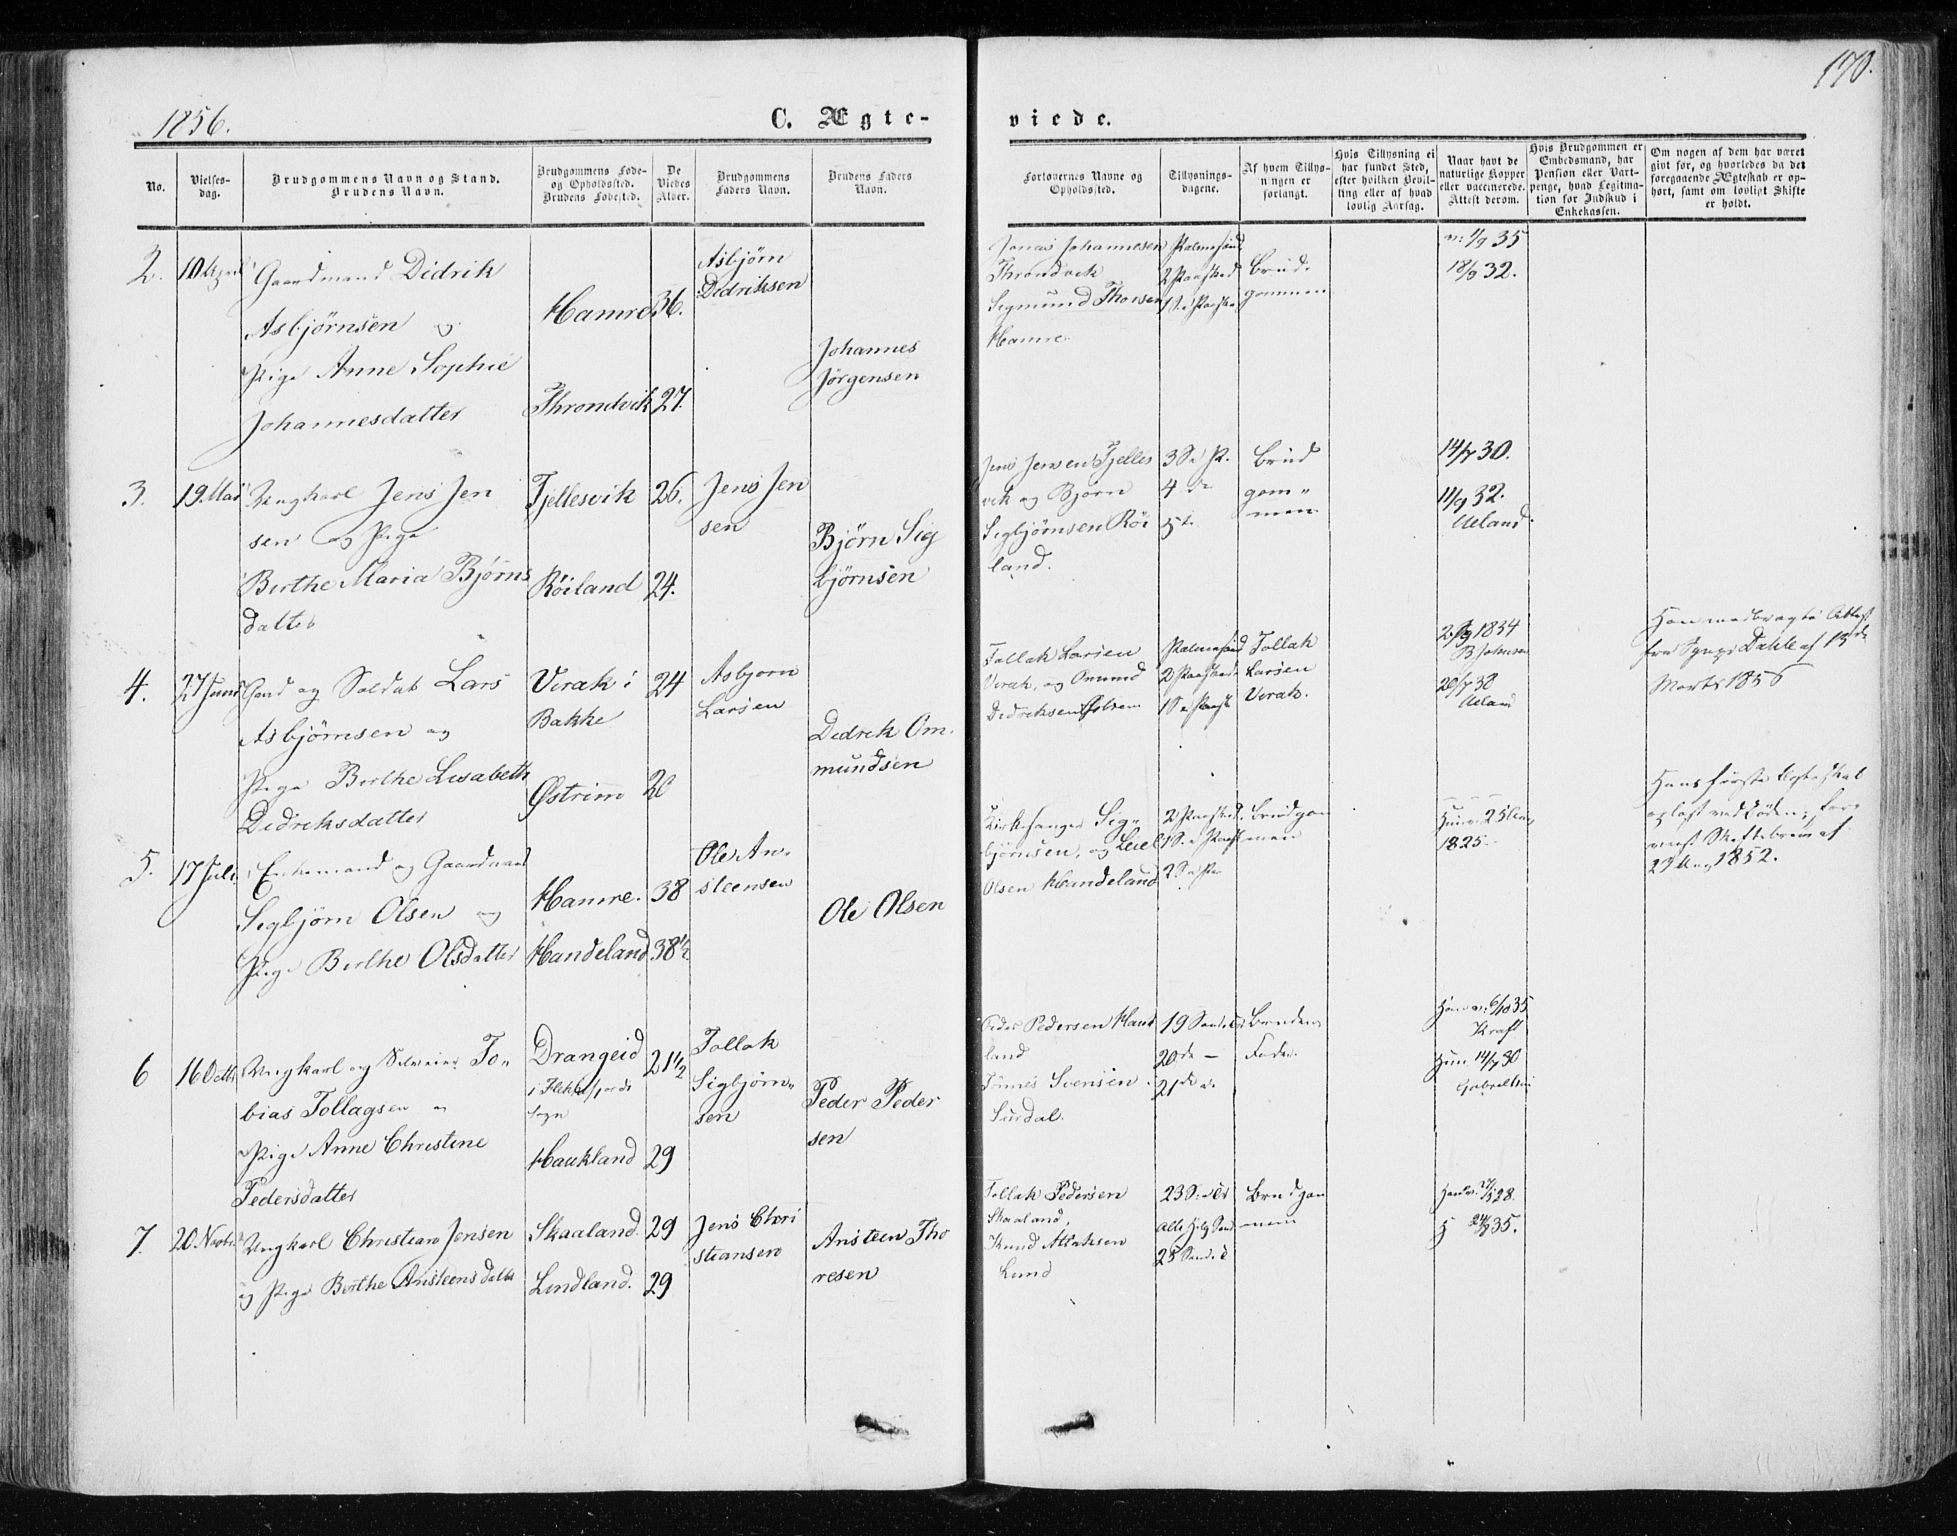 170.
1856.
C. Ægte-
viede.
No.
Vielses-
dag.
Brudgommens Navn og Stand.
Brudens Navn.
Brudgommens Føde-
og Opholdssted.
Brudens Fødested.
De
Viedes
Alder.
Brudgommens
Faders Navn.
Brudens Faders
Navn.
Forlovernes Navne og
Opholdssted.
Tillysnings-
dagene.
Af hvem Tillys-
ningen er
forlangt.
Hvis Tillysning ei
har fundet Sted,
efter hvilken Bevil-
ling eller af hvad
lovlig Aarsag.
Naar havt de
naturlige Kopper
eller vaccinerede.
Attest derom.
Hvis Brudgommen er
Embedsmand, har
Pension eller Vart-
penge, hvad Legitima-
tion for Indskud i
Enkekassen.
Om nogen af dem har været
givt før, og hvorledes da det
foregaaende Ægteskab er op-
hørt, samt om lovligt Skifte
er holdt.
2.
10 April
Gaardmand Didrik
Asbjørnsen og
Pige Anne Sophie
Johannesdatter
Hamre
Throndvik
36.
27.
Asbjørn
Didriksen
Johannes
Jørgensen
Jonas Johannesen
Throndvik
Sigmund Thorsen
Hamre
Palmesønd
2 Paasked
1 S. e Paaske
Brud-
gommen
1/9 35
18/9 32.
3.
19. Mai
Ungkarl Jens Jen
sen og Pige
Birthe Maria Bjørns
datter
Fjellesvik
Røiland
26.
24.
Jens Jen
sen
Bjørn Sig
bjørnsen
Jens Jensen Fjelles
vik og Bjørn
Sigbjørnsen Røi
land.
3 S. e P.
4 de
5te
Brud
gom"
men
14/7 30.
11/9 32.
Ueland.
4.
27 Juni
Gaard og Soldat Lars
Asbjørnsen og
Pige Birthe Lisabeth
Didriksdatter
Virak i
Bakke
Østrim
24
20
Asbjørn
Larsen
Didrik Om-
mundsen
Tollak Larsen
Virak, og Omund
Didriksen
Palmesønd
2 Paaskeds
1 S. e Paask
Tollak
Larsen
Virak.
1834
B Johnsen
20/7 38
Ueland
Han medbragte Attest
fra Dahle af 15de
Marts 1856
5.
17 Juli
Enkemand og Gaardmand
Sigbjørn Olsen og
Pige Birthe Olsdatter
Hamre.
Handeland
38
38½
Ole An-
steensen
Ole Olsen
Kirkesanger Sig-
bjørnsen, og
Olsen Handeland
2 Paasked.
1 S. e Paask
Brudgom
men
1825.
Hans første Ægteskab
opløst ved Døden;
Skiftebrev af
1852.
6
16 Octbr
Ungkarl og Selveier To"
bias Tollagsen og
Pige Anne Christine
Pedersdatter
Drangeid
i Flekkefjords
Sogn
Haukland
21½
29
Tollak
Sigbjørn"
sen
Peder Peder
sen
Peder Pedersen Hauk
land
Tønnes Svensen
Surdal.
19 Sønd.
20de —
21de
Brudens
Fader.
Han v. 6/10 35
Kraft
Hun 14/7 30
7.
20. Novbr.
Ungkarl Christian Jensen
og Pige Birthe Ansteensdatter
Skaaland.
Lindland.
29
29
Jens Chri
stiansen
Ansteen Tho
resen
Tollak Pedersen
Skaaland,
Knud Atlaksen
Lund
23 S. e Tr
Alle Helg. Sønd
25 Sønd. e
Brudgom
men
28.
35.